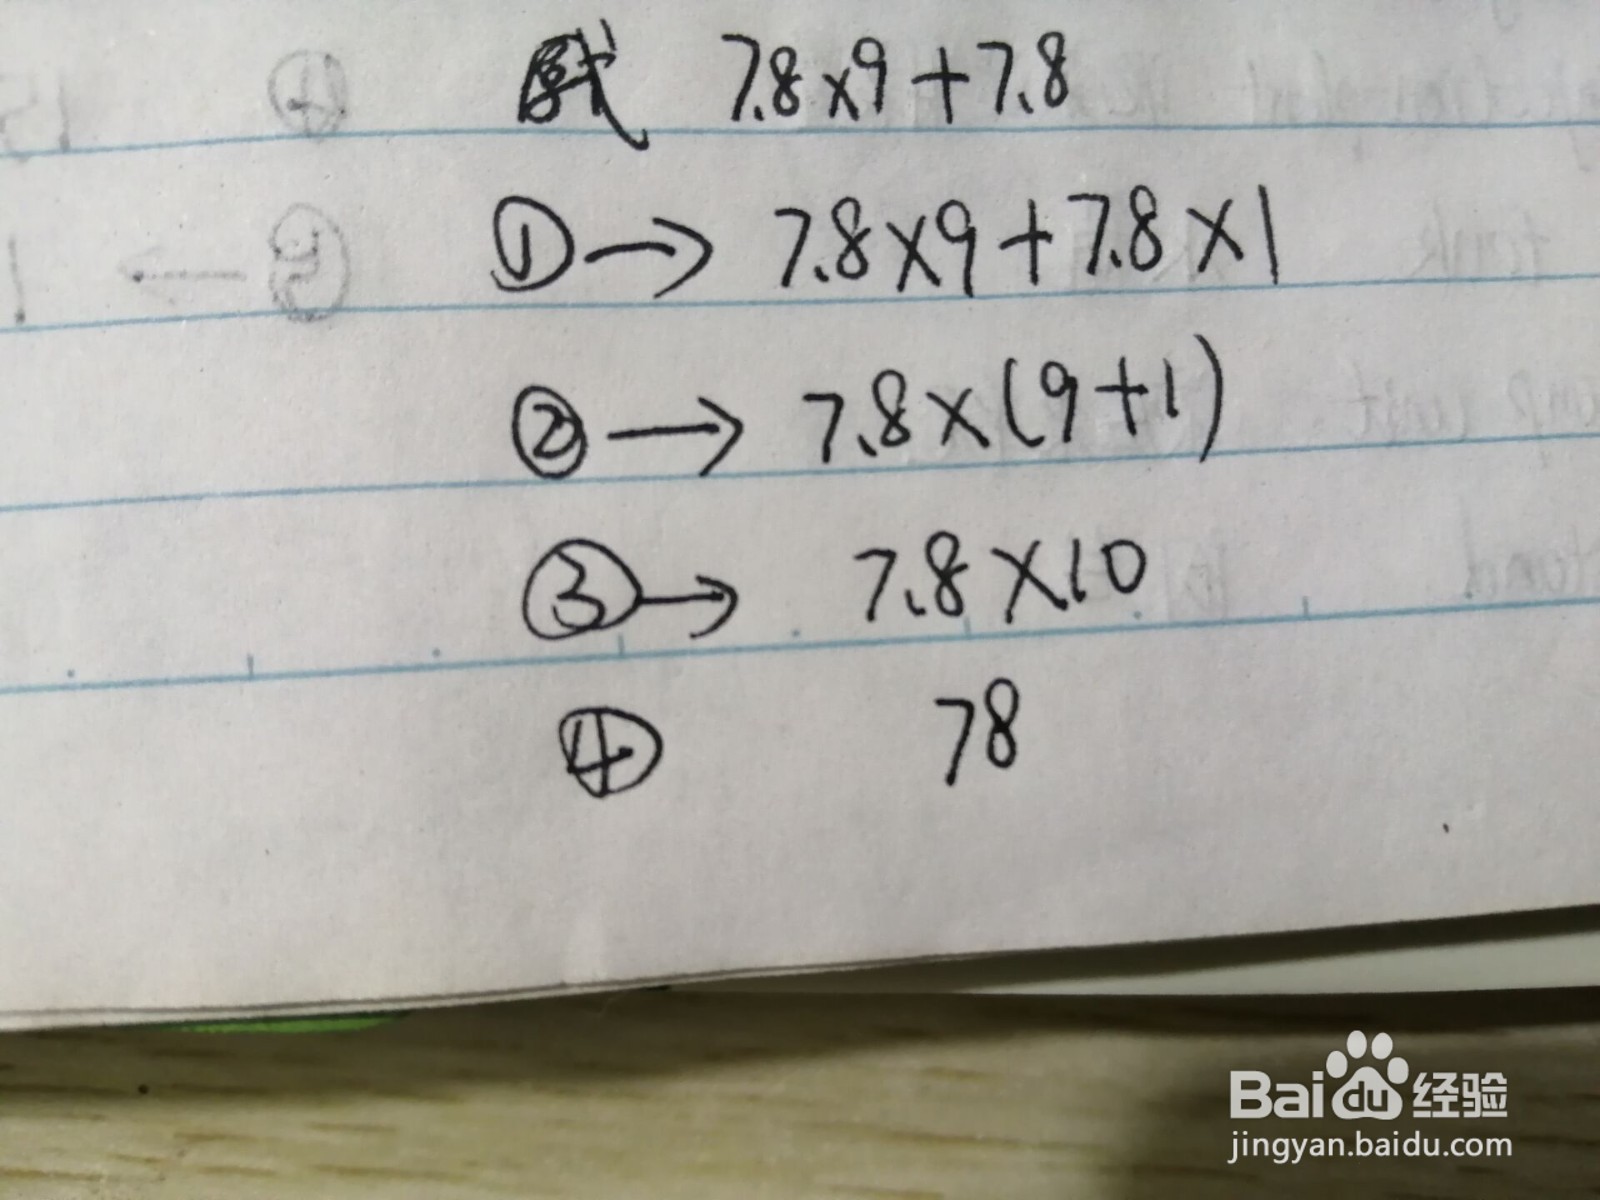 原式 7.8×9+7.8
①→ 7.8×9+7.8×1
②→ 7.8×(9+1)
③→ 7.8×10
④ 78
Baidu经验
jingyan.baidu.com